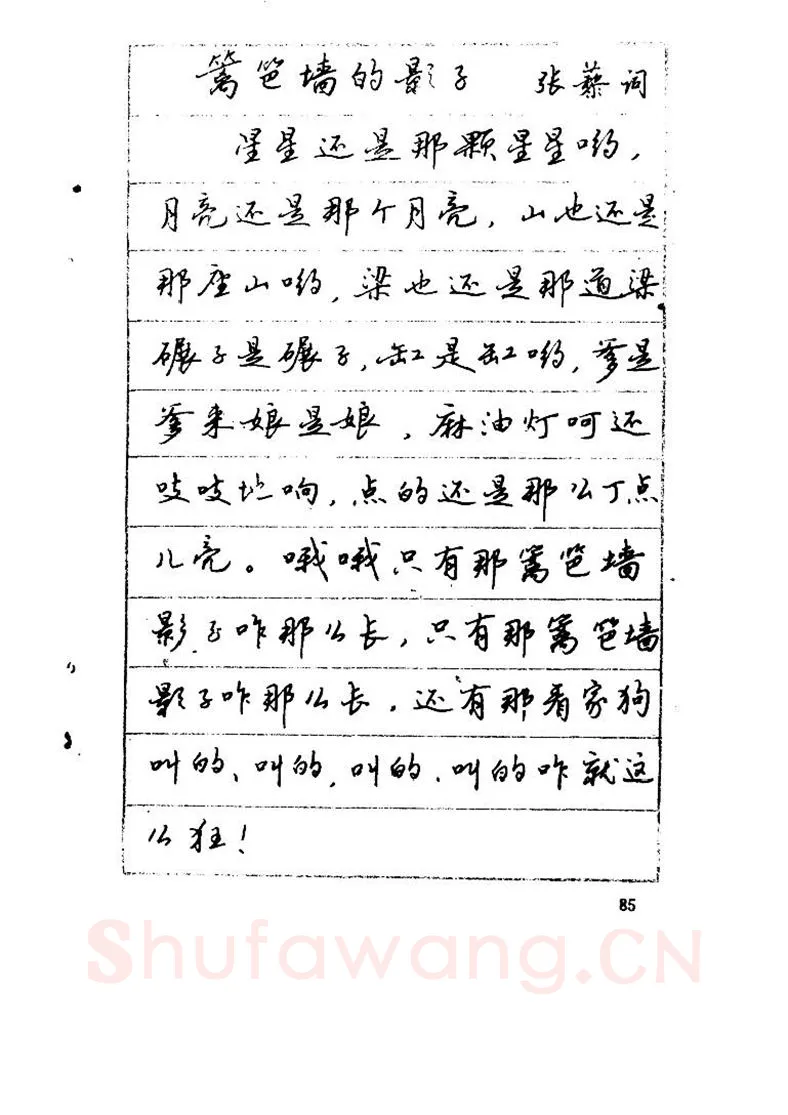 篱笆墙的影子 张藜词
星星还是那颗星星哟，
月亮还是那个月亮，山也还是
那座山哟，梁也还是那道梁
碾子是碾子，缸是缸哟，爹是
爹来娘是娘，麻油灯呵还
吱吱地响，点的还是那么丁点
儿亮。哦哦只有那篱笆墙
影子咋那么长，只有那篱笆墙
影子咋那么长，还有那看家狗
叫的、叫的，叫的，叫的咋就这
么狂！
85
Shufawang.CN